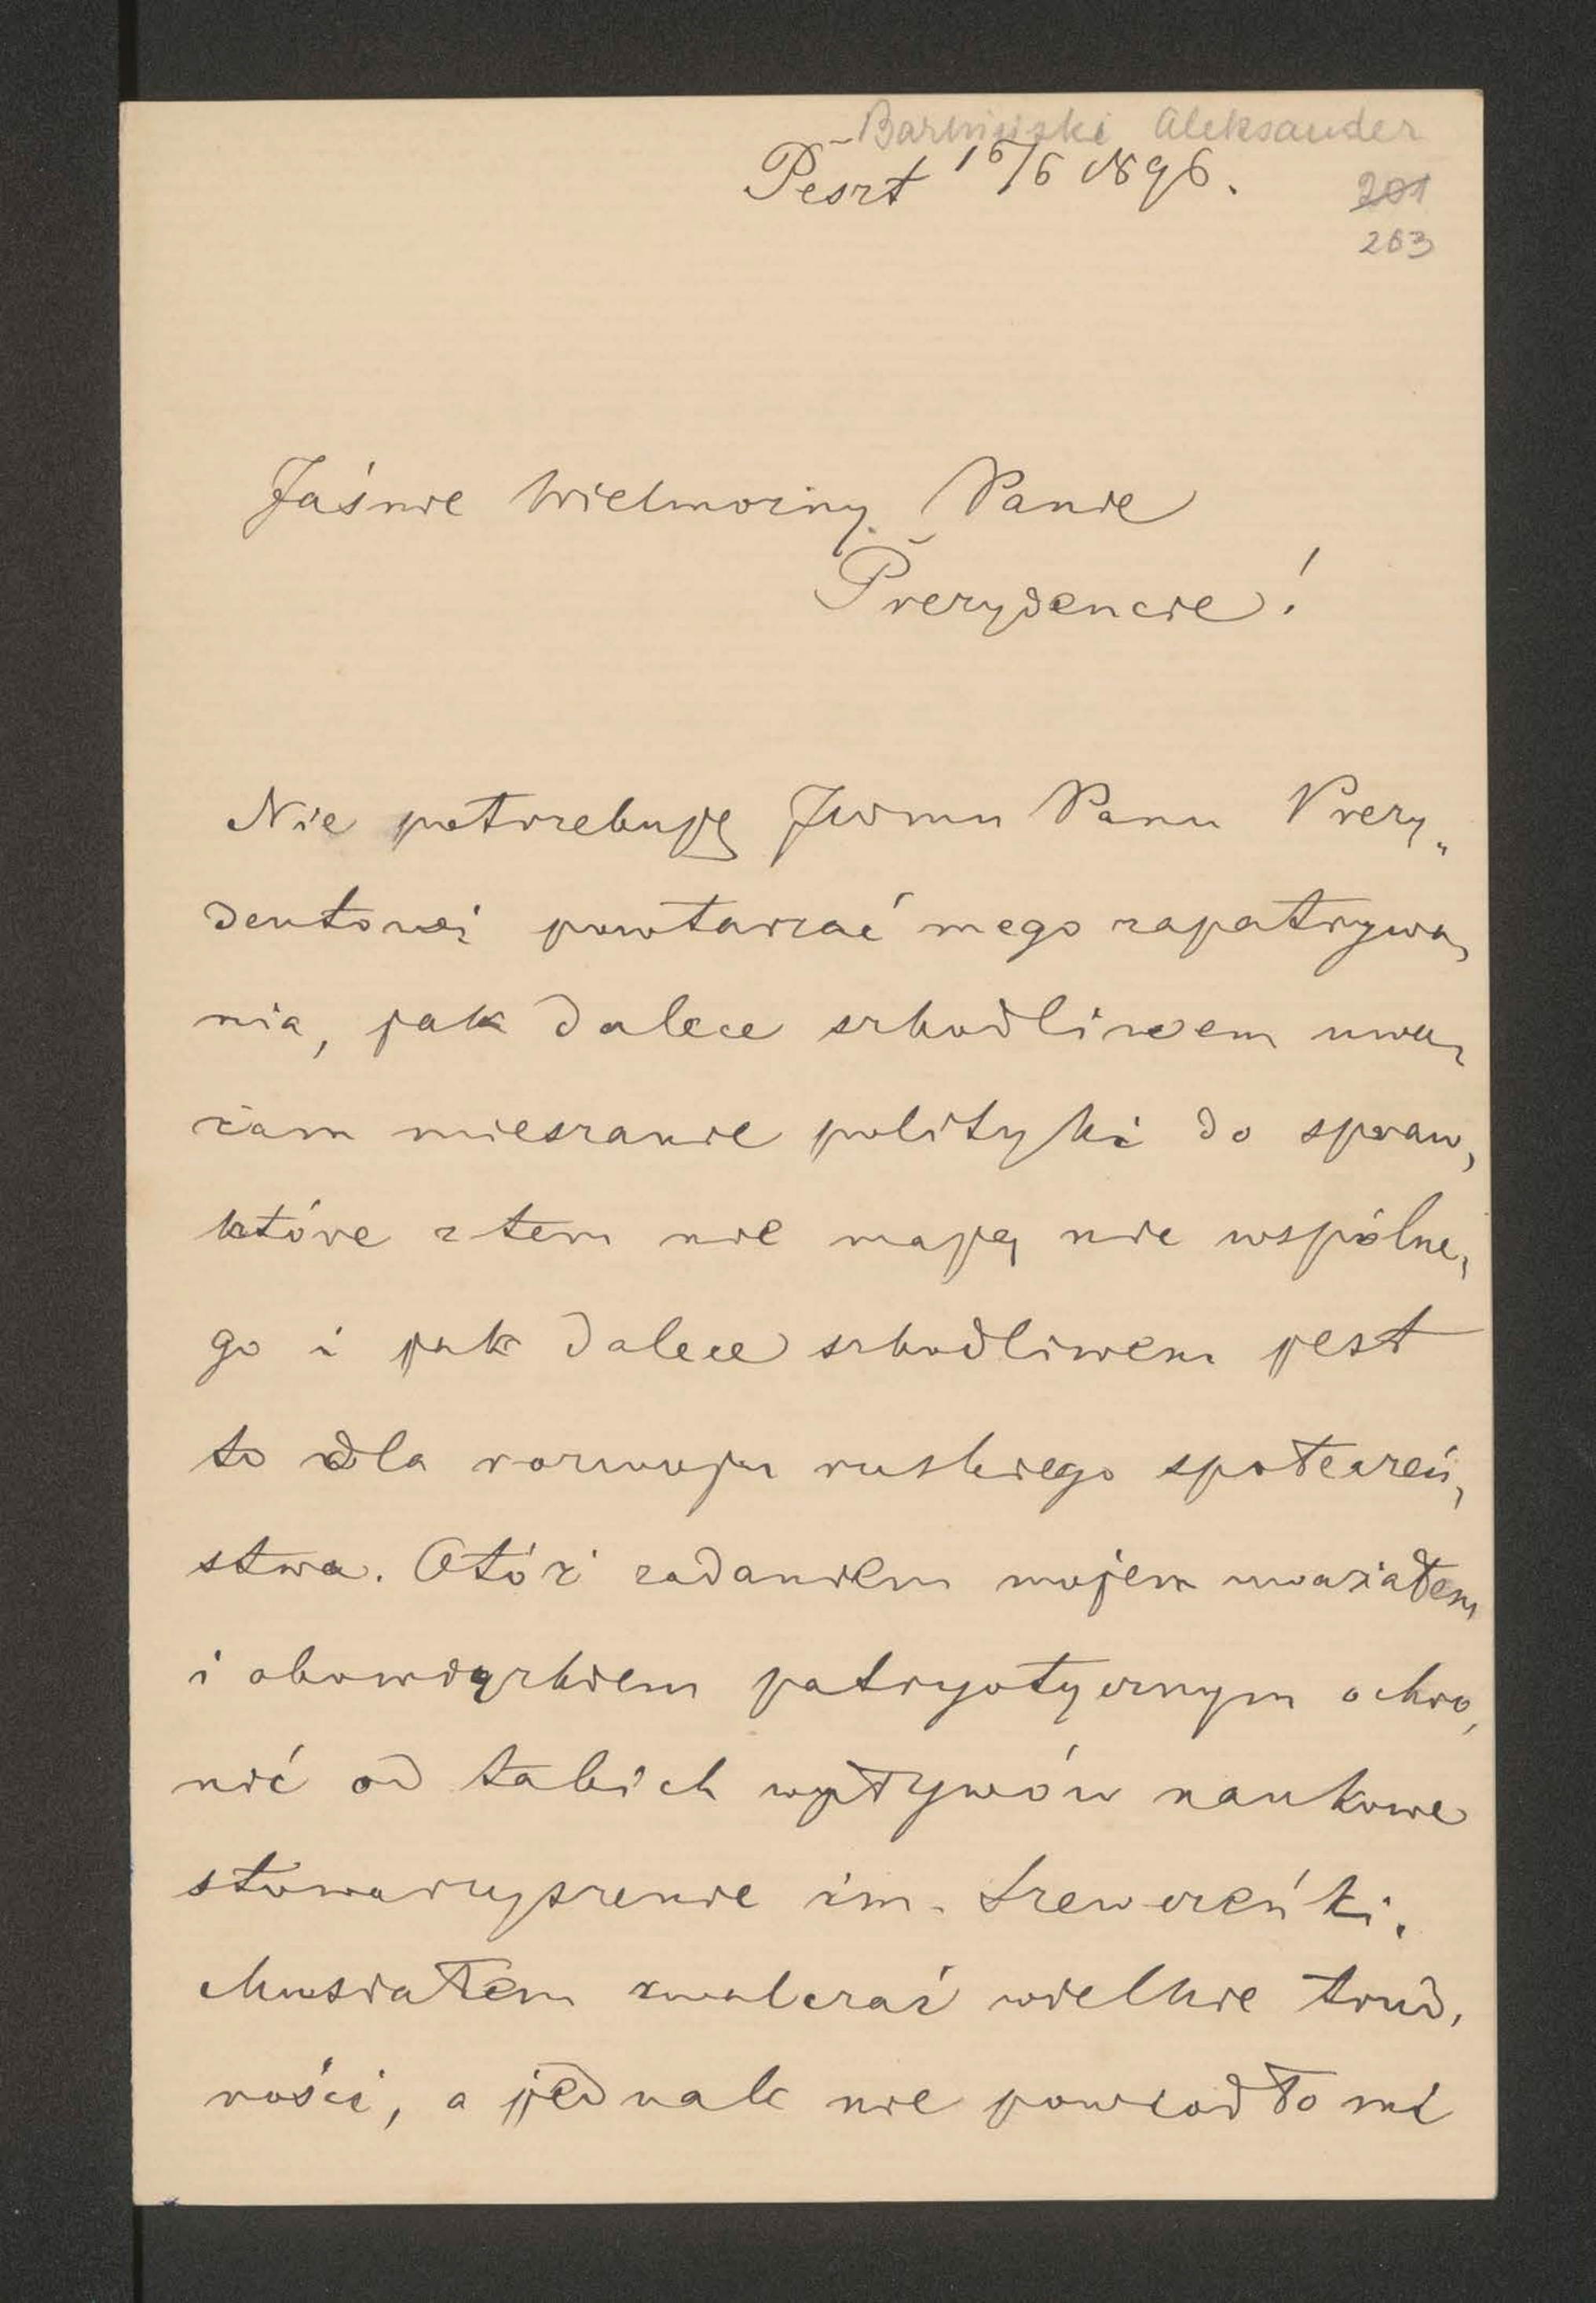 Barwiński Aleksander
Peszt 16/6 1896.
201
263
Jaśnie Wielmożny Panie
Prezydencie!
Nie potrzebuję JWmu Panu Prezy„
dentowi powtarzać mego zapatrywa,
nia, jak dalece szkodliwem uwa,
żam mieszanie polityki do spraw,
które z tem nie mają nic wspólne,
go i jak dalece szkodliwem jest
to dla rozwoju ruskiego społeczeń,
stwa. Otóż zadaniem mojem uważałem
i obowiązkiem patryotycznym ochro,
nić od takich wpływów naukowe
stowarzyszenie im. Szewczeńki.
Musiałem zwalczać wielkie trud,
ności, a jednak nie powiodło mi